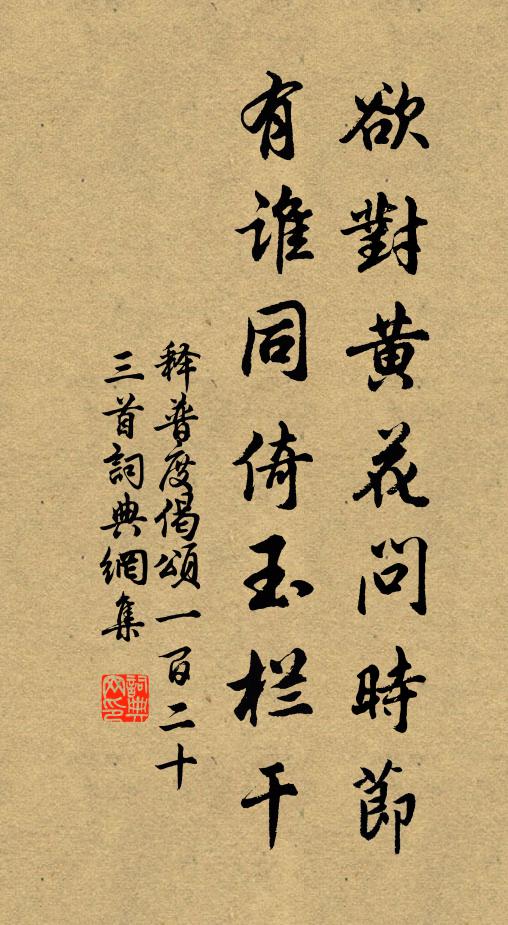 欲對黄花問時節
有誰同倚玉栏干
释普度偈頌一百二十
三首詞典網集
詞典網印